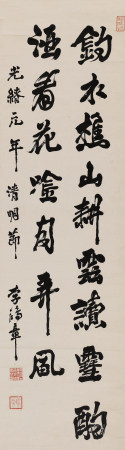 釣水樵山耕雲讀雪酌
酒看花唫月弄風
光緒元年清明節
李鴻章